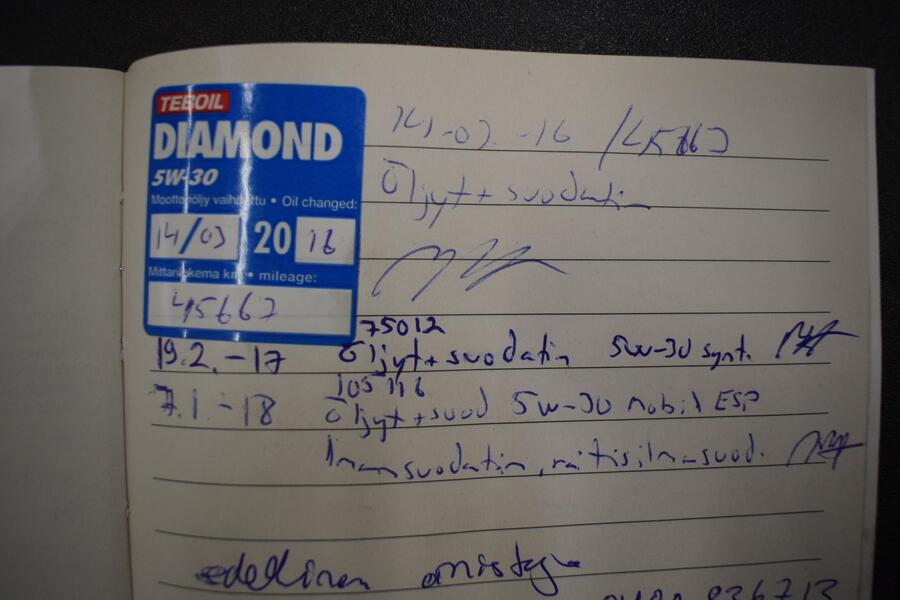 TEBOIL
DIAMOND
5W-30
Moottoriöljy vaihdettu • Oil changed:
14/03 2016
Mittarilukema km • mileage:
45667
14.03.-16 /45667
Öljyt + suodatin
75012
19.2.-17 Öljyt + suodatin 5W-30 synt.
105 116
7.1.-18 Öljyt + suod 5W-30 Mobil ESP
Ilmansuodatin, raitisilmasuod.
edellinen omistaja
836713